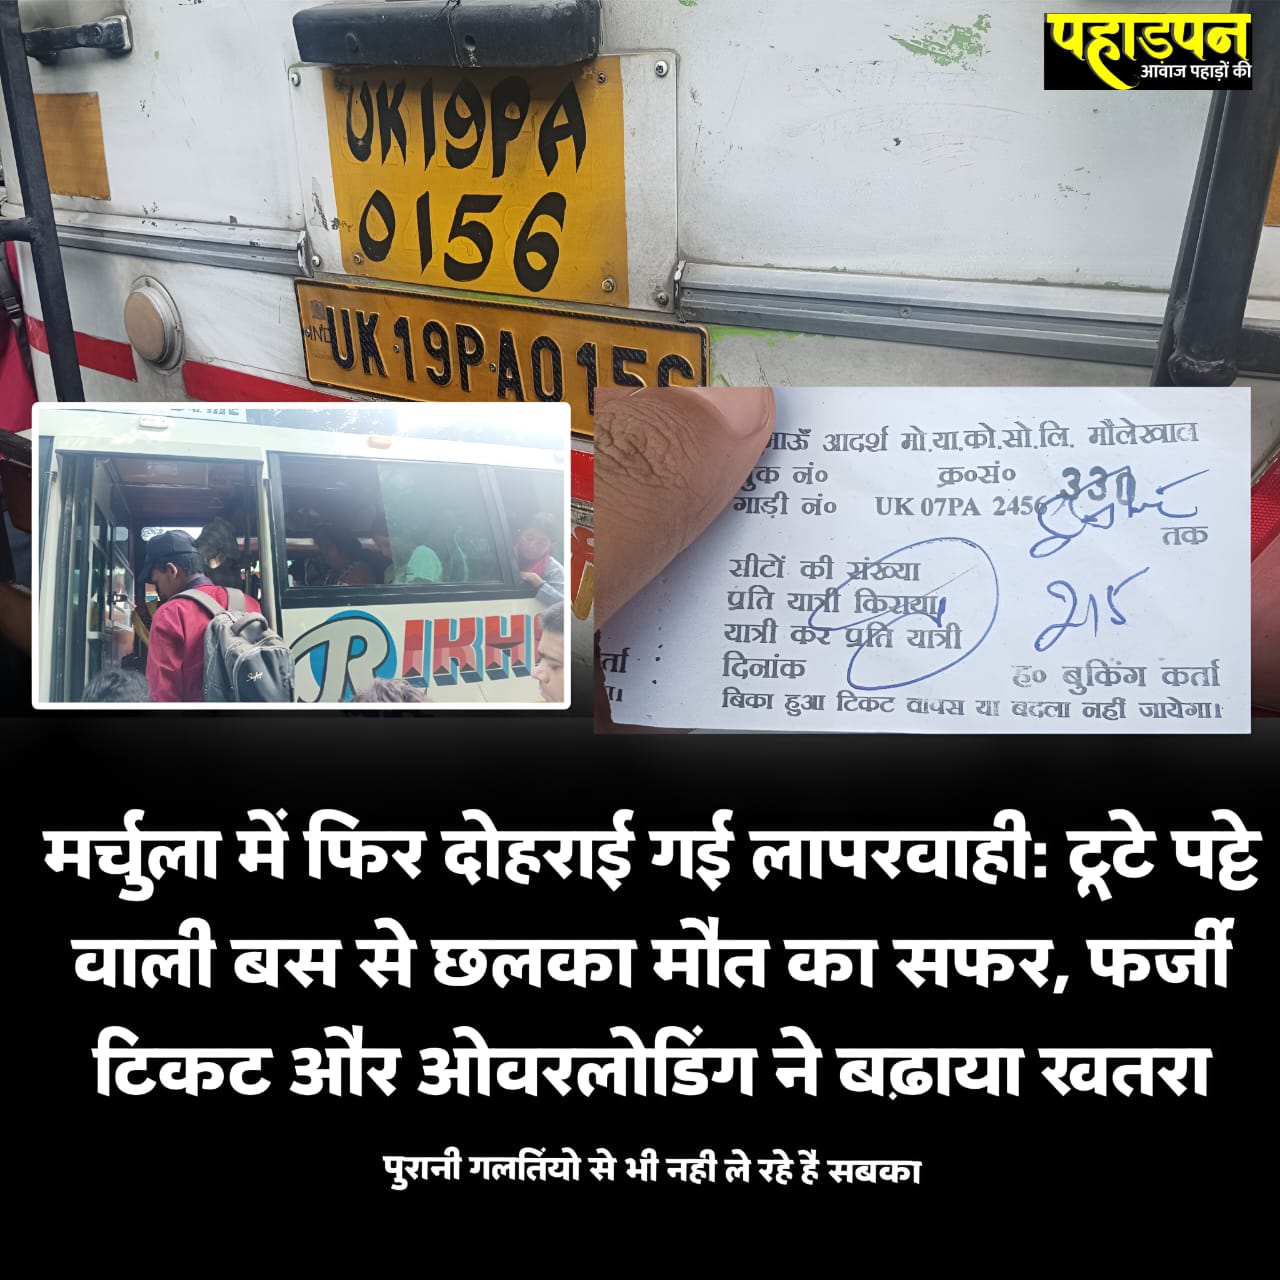 पहाड़पन
आवाज पहाड़ों की
UK19PA
0156
IND
UK19PA0156
RIKH
माऊँ आदर्श मो.या.को.सो.लि. मौलेखाल
बुक नं० क्र०सं० 330
गाड़ी नं० UK 07PA 2456
तक
सीटों की संख्या
प्रति यात्री किराया 215
यात्री कर प्रति यात्री
दिनांक ह० बुकिंग कर्ता
बिका हुआ टिकट वापस या बदला नहीं जायेगा।
र्ता
मर्चुला में फिर दोहराई गई लापरवाही: टूटे पट्टे
वाली बस से छलका मौत का सफर, फर्जी
टिकट और ओवरलोडिंग ने बढ़ाया खतरा
पुरानी गलतिंयो से भी नही ले रहे है सबका